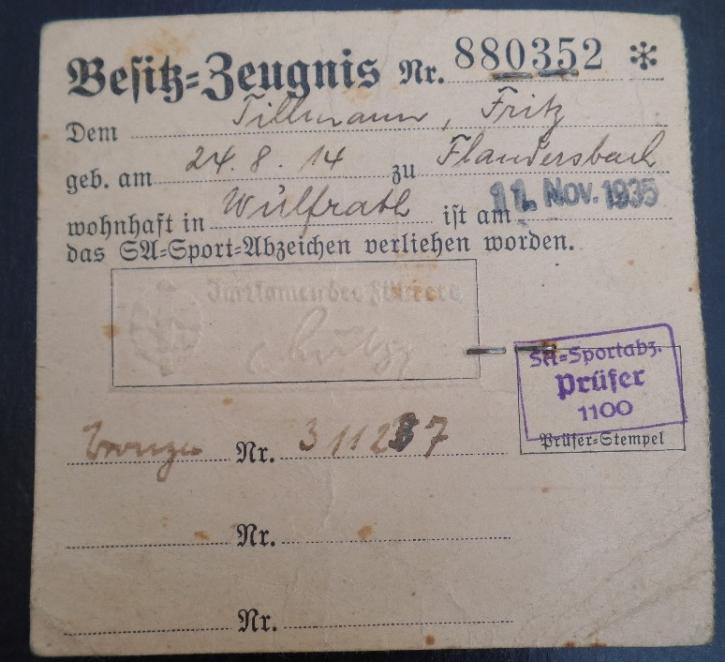 Besitz=Zeugnis Nr. 880352 *
Dem Tillmann, Fritz
geb. am 24. 8. 14 zu Flandersbach
wohnhaft in Wülfrath ist am 11. Nov. 1935
das SA=Sport=Abzeichen verliehen worden.
Im Namen des Führers
SA=Sportabz.
Prüfer
1100
Prüfer=Stempel
Bronze Nr. 311237
Nr.
Nr.